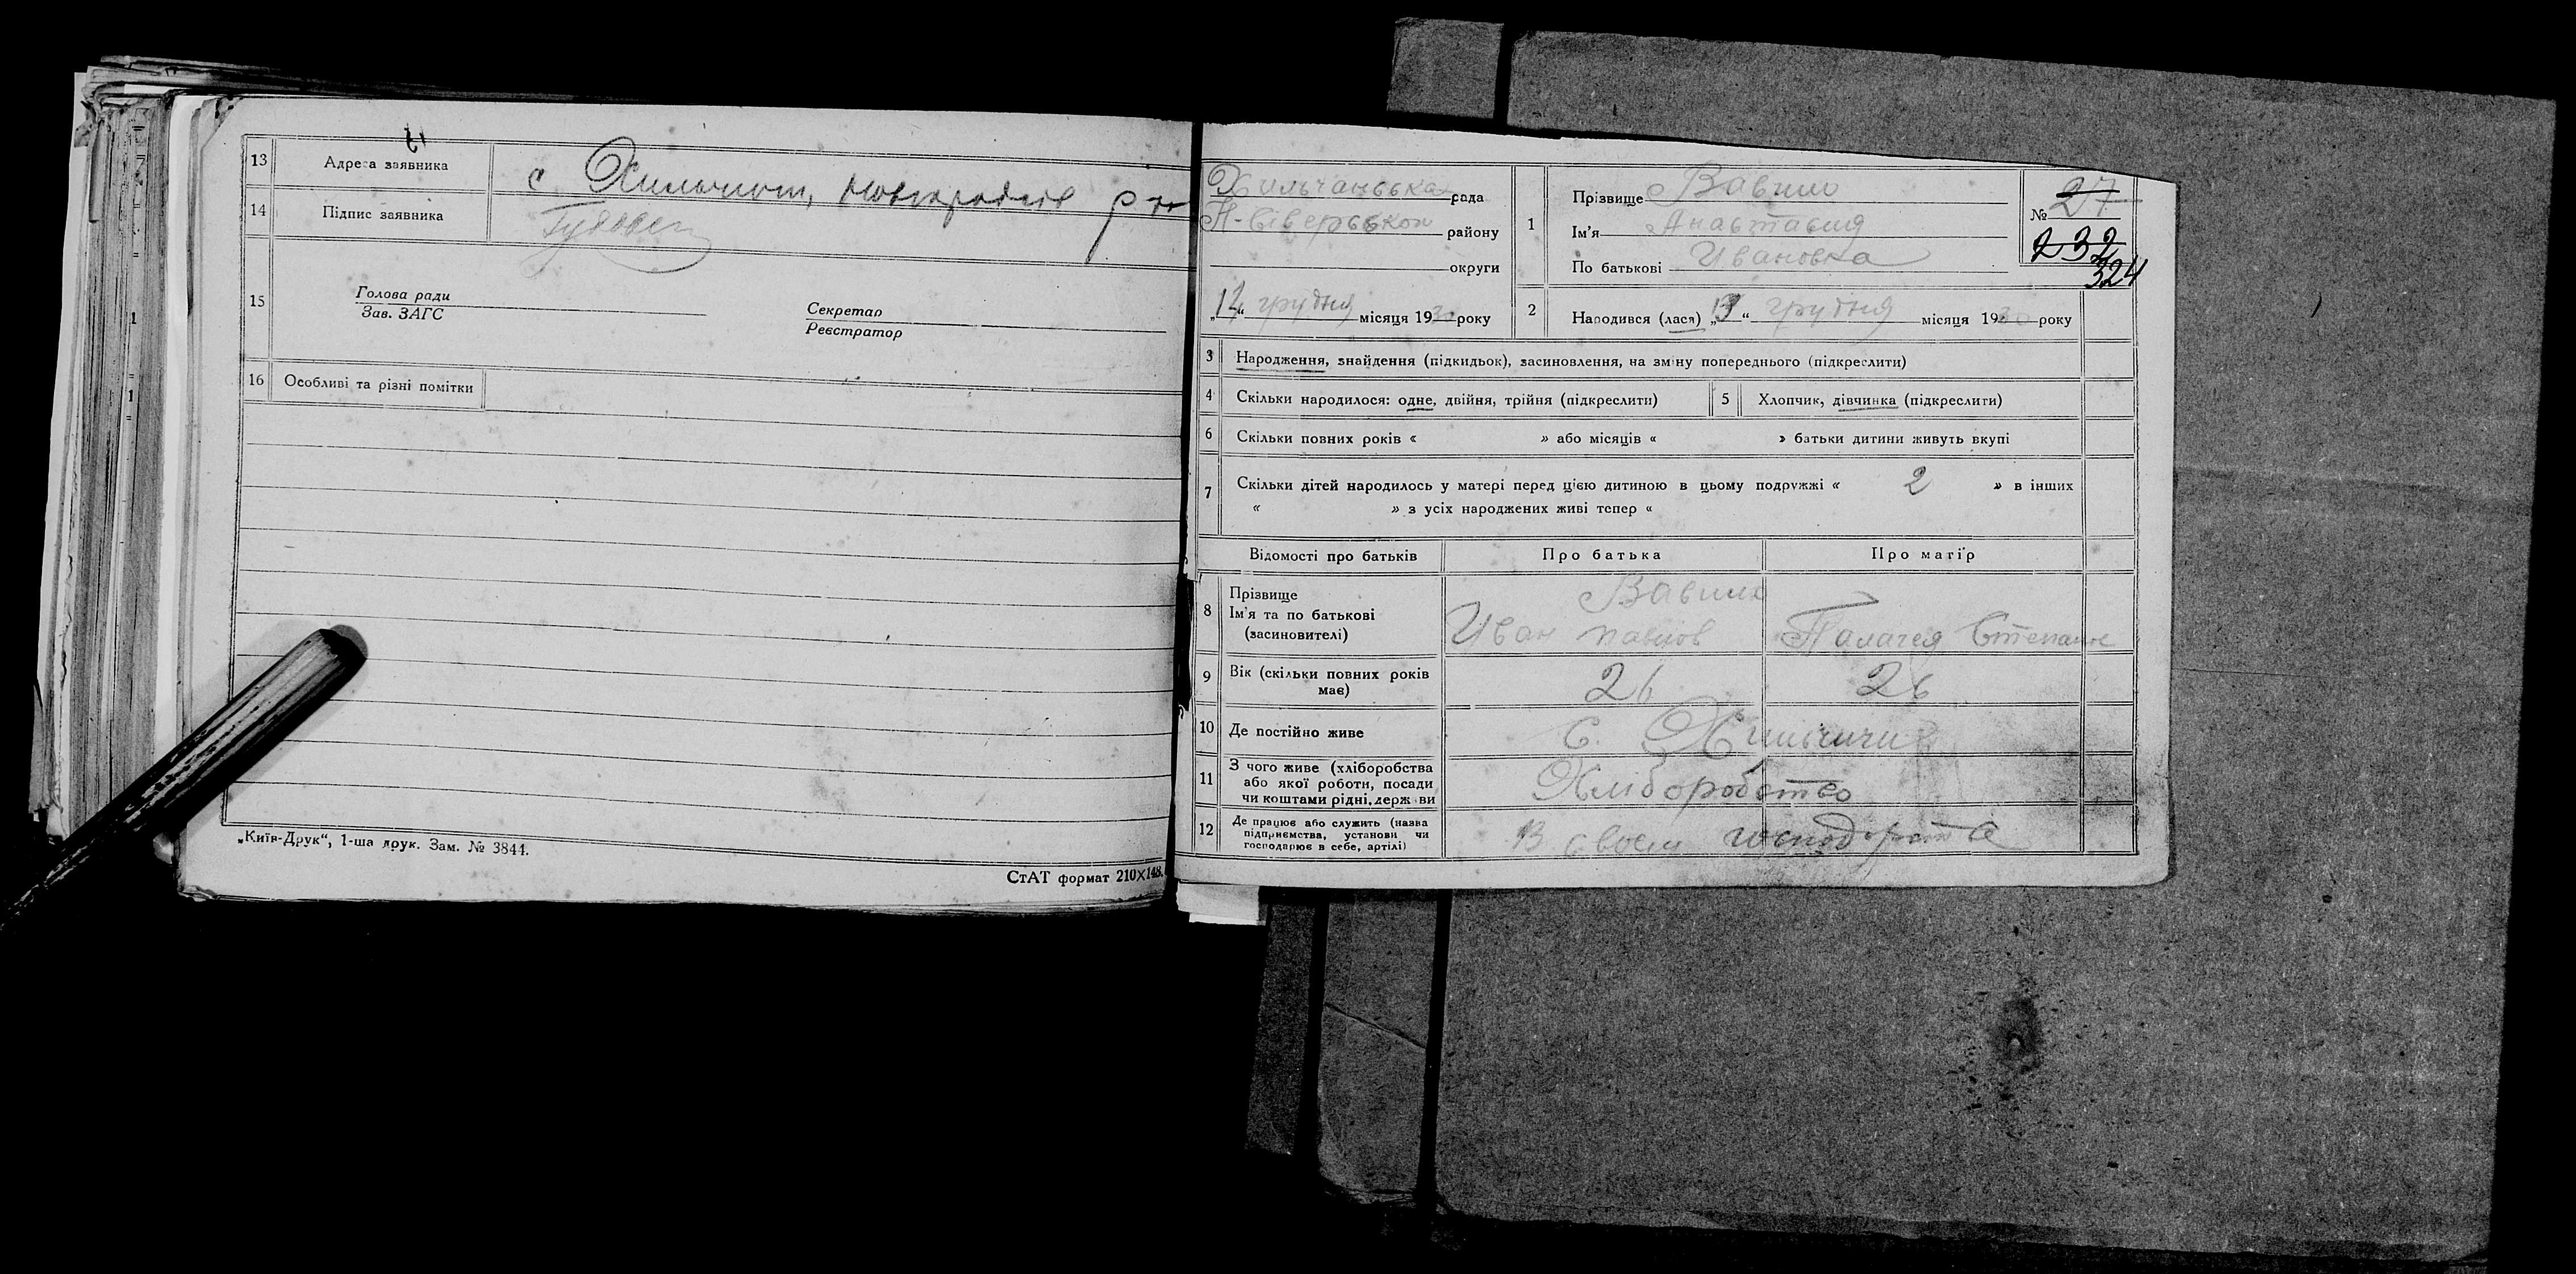 13 Адреса заявника с
14 Підпис заявника
15 Голова ради Секретар
Зав. ЗАГС Реєстратор
16 Особливі та різні помітки
„Київ-Друк“, 1-ша друк. Зам. № 3844.
СтАТ формат 210×148.
Хильчанська рада
Н-Сіверського району
округи
„14“ грудня місяця 1930 року
1 Прізвище
Ім'я Анастасия
По батькові Ивановна
№ 27
232
324
2 Народився (лася) „ “ грудня місяця 1930 року
3 Народження, знайдення (підкидьок), засиновлення, на зміну попереднього (підкреслити)
4 Скільки народилося: одне, двійня, трійня (підкреслити) 5 Хлопчик, дівчинка (підкреслити)
6 Скільки повних років « » або місяців « » батьки дитини живуть вкупі
7 Скільки дітей народилось у матері перед цією дитиною в цьому подружжі « 2 » в інших
« » з усіх народжених живі тепер «
Відомості про батьків Про батька Про матір
8 Прізвище
Ім'я та по батькові
(засиновителі) Иван Павлов Палагея Степанов
9 Вік (скільки повних років
має) 26 26
10 Де постійно живе С. Хильчичи
11 З чого живе (хліборобства
або якої роботи, посади
чи коштами рідні, держ ви Хліборобство
12 Де працює або служить (назва
підприємства, установи чи
господарює в себе, артілі) В своем